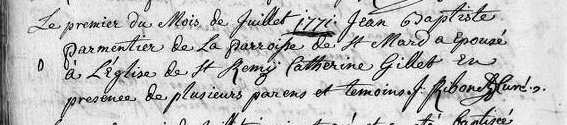 Le premier du Mois de Juillet 1771 Jean Baptiste
Parmentier de La Parroisse de St Mard a Epousé
à L'Eglise de St Remÿ Catherine Gillet en
presence de plusieurs parens et temoins f. Ribon Curé